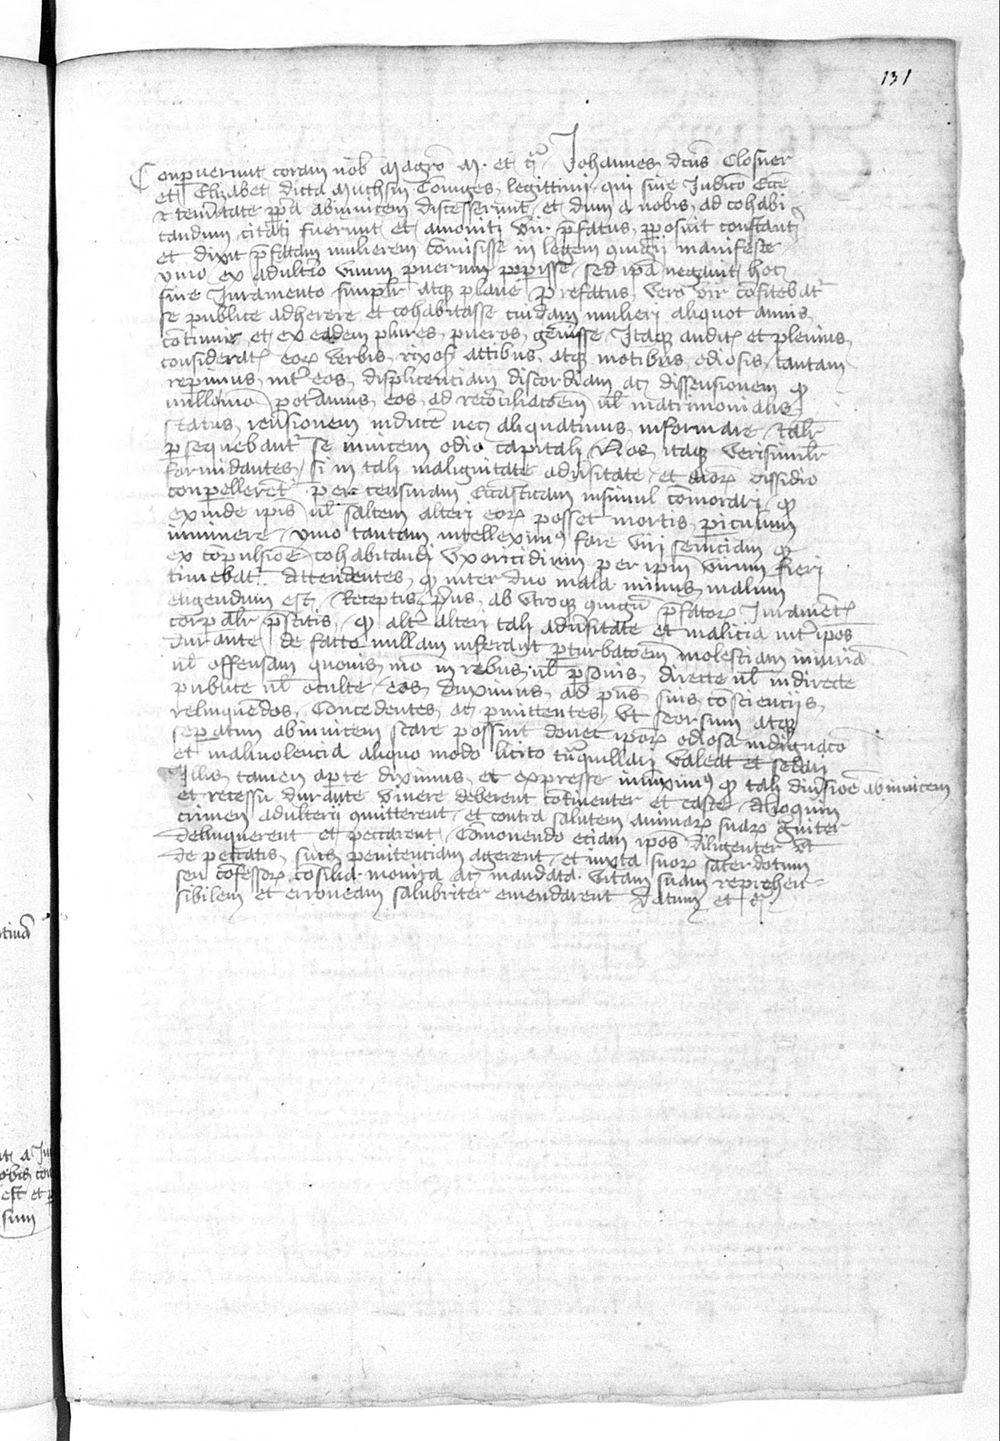 131
Conpuerunt coram nob Magro M. et c Johannes dcus Closner
et Elizabet dicta Muchsin Coniuges legittimi qui sine Judico Ecce
t temitate ppa abinuicem discesserunt et dum a nobis ad cohabi
tandum citati fuerunt et amoniti vir pfatus pposuit constant
et dixit pfatam mulierem comisisse in legem 9iugii manifeste
ymo ex adultio vnum puerum peperisse sed ipa negauit hoc
sine Juramento simplr atq plane prefatus vero vir confitebat
se publice adherere et cohabitasse cuidam mulieri aliquot annis
cotinuis et ex eadem plures pueros genuisse Itaq audit et plenius
considerat eor verbis rixos actibus atq motibus odiosis tantam
repimus int eos displicenciam discordiam ac dissensionem q
nullomo potamus eos ad reconciliacoem ul matrimonialis
status reusionem inducere nec aliquatinus informare talr
psequebant se inuicem odio capitali Nos itaq verisimilr
formidantes si in tali malignitate aduersitate et dissidio
conpellerent per censuram Eccasticam insimul comorari q
exinde ipis ul saltem alteri eor posset mortis periculum
iminere ymo tantam intelleximus fore viri seuiciam q
ex copulsioe cohabitandi vxoricidium per ipm virum fieri
timebat Attendentes q inter duo mala minus malum
eligendum est Receptis pus ab vtroq 9iugu pfator Jurament
corpalr pstitis q alt alteri tali aduersitate et malicia int ipos
durante de facto nullam inferant pturbacoem molestiam iniuria
ul offensam quouis mo in rebus ul psonis directe ul indirecte
publice ul oculte eos duximus ad pns suis conscienciis
relinquedos Concedentes ac pmittentes vt seorsum atq
sepatim abinuicem stare possint donec ipor odiosa indignaco
et maliuolencia aliquo modo licito tnquillari valeat et sedari
Illis tamen apte diximus et expresse iniuximus q tali diuisioe abinuicem
et recessu durante viuere deberent cotinenter et caste Alioquin
crimen adulterii 9mitterent et contra salutem animar suar guiter
delinquerent et peccarent Comonendo eciam ipos diligenter vt
de peccatis suis penitenciam agerent et iuxta suor sacerdotum
seu cofessor cosilia monita ac mandata vitam suam reprehen
sibilem et erroneam salubriter emendarent Datum et c